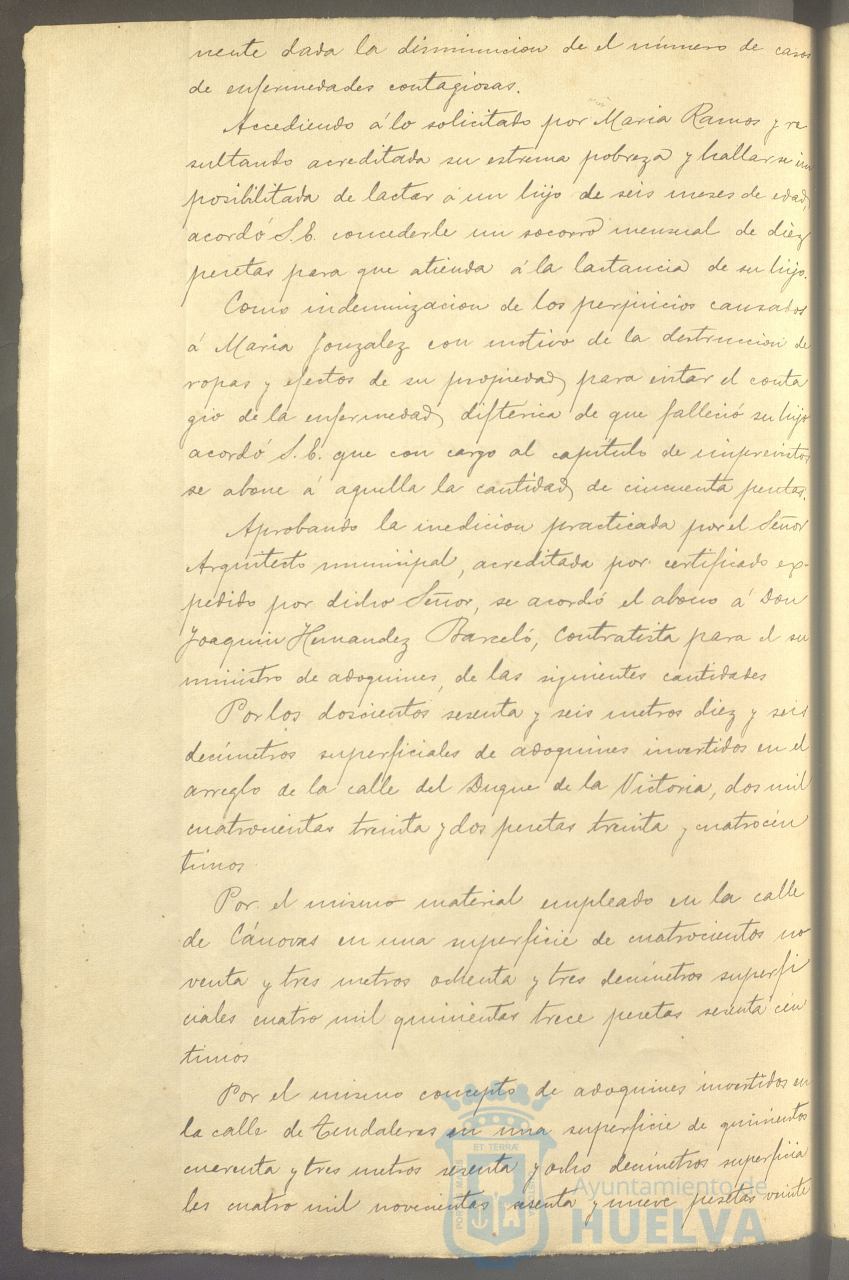 nente dada la disminucion de el número de casos
de enfermedades contagiosas.
Accediendo á lo solicitado por Maria Ramos y re
sultando acreditada su estrema pobreza y hallarse im
posibilitada de lactar á un hijo de seis meses de edad,
acordó S.E. concederle un socorro mensual de diez
pesetas para que atienda á la lactancia de su hijo.
Como indemnizacion de los perjuicios causados
á Maria Gonzalez con motivo de la destruccion de
ropas y efectos de su propiedad para evitar el conta
gio de la enfermedad diftérica de que falleció su hijo
acordó S.E. que con cargo al capitulo de imprevistos
se abone á aquella la cantidad de cincuenta pesetas.
Aprobando la medicion practicada por el Señor
Arquitecto municipal, acreditada por certificado ex-
pedido por dicho Señor, se acordó el abono á Don
Joaquin Hernandez Barceló, Contratista para el su
ministro de adoquines, de las siguientes cantidades
Por los doscientos sesenta y seis metros diez y seis
decímetros superficiales de adoquines invertidos en el
arreglo de la calle del Duque de la Victoria, dos mil
cuatrocientas treinta y dos pesetas treinta y cuatro cén
timos
Por el mismo material empleado en la calle
de Cánovas en una superficie de cuatrocientos no
venta y tres metros ochenta y tres decímetros superfi
ciales cuatro mil quinientas trece pesetas sesenta cén
timos
Por el mismo concepto de adoquines invertidos en
la calle de Tendaleras en una superficie de quinientos
cuarenta y tres metros sesenta y ocho decímetros superficia
les cuatro mil novecientas sesenta y nueve pesetas veinte
ET TERRA
Ayuntamiento de
HUELVA